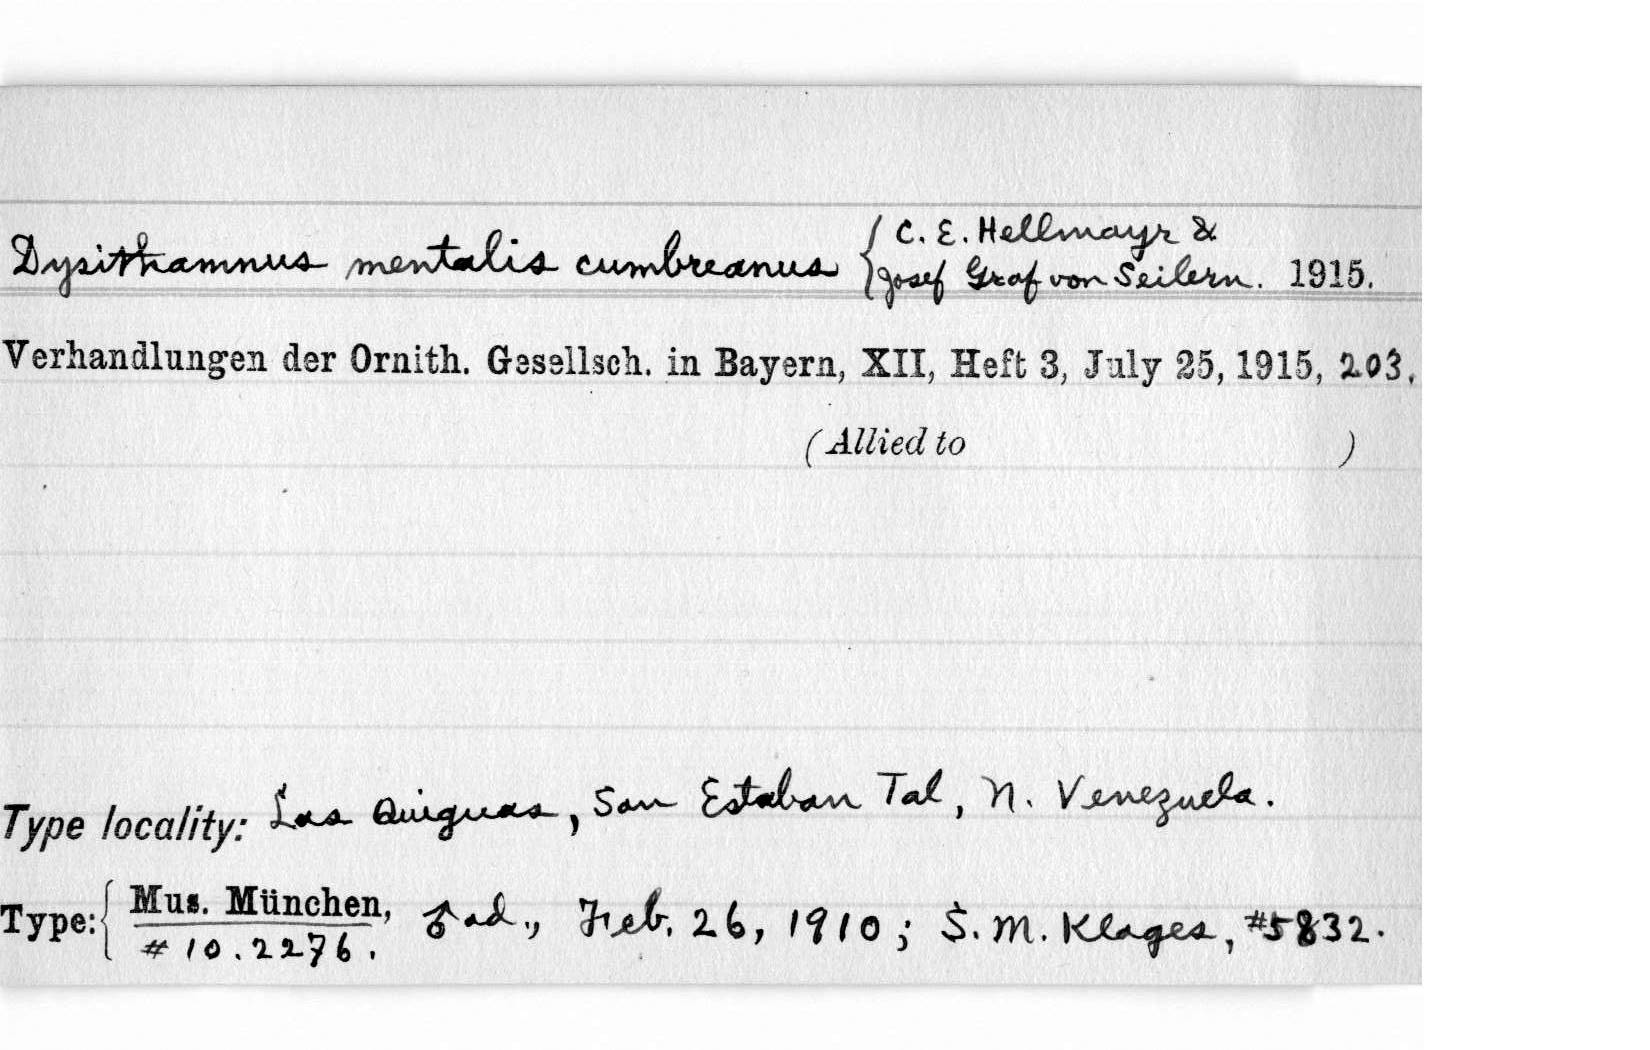 Dysithamnus mentalis cumbreanus { C. E. Hellmayr &
Josef Graf von Seilern. 1915.
Verhandlungen der Ornith. Gesellsch. in Bayern, XII, Heft 3, July 25, 1915, 203.
(Allied to )
Type locality: Las Quiguas, San Estaban Tal, N. Venezuela.
Type: { Mus. München, ♂ ad., Feb. 26, 1910; S. M. Klages, #5832.
# 10.2276.